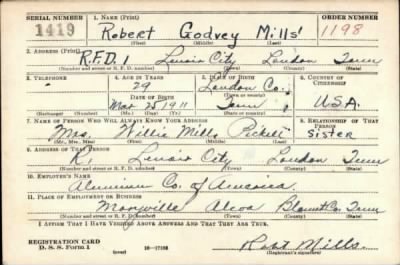 SERIAL NUMBER 1. NAME (Print) ORDER NUMBER
1419 Robert Godvey Mills 1198
(First) (Middle) (Last)
2. ADDRESS (Print)
R.F.D. 1 Lenoir City Loudon Tenn
(Number and street or R. F. D. number) (Town) (County) (State)
3. TELEPHONE 4. AGE IN YEARS 5. PLACE OF BIRTH 6. COUNTRY OF CITIZENSHIP
29 Loudon Co.
DATE OF BIRTH (Town or county)
Mar 25 1911 Tenn U.S.A.
(Exchange) (Number) (Mo.) (Day) (Yr.) (State or country)
7. NAME OF PERSON WHO WILL ALWAYS KNOW YOUR ADDRESS 8. RELATIONSHIP OF THAT PERSON
Mrs. Willie Mills Pickel Sister
(Mr., Mrs., Miss) (First) (Middle) (Last)
9. ADDRESS OF THAT PERSON
R1 Lenoir City Loudon Tenn
(Number and street or R. F. D. number) (Town) (County) (State)
10. EMPLOYER'S NAME
Aluminum Co. of America
11. PLACE OF EMPLOYMENT OR BUSINESS
Maryville Alcoa Blount Co. Tenn
(Number and street or R. F. D. number) (Town) (County) (State)
I AFFIRM THAT I HAVE VERIFIED ABOVE ANSWERS AND THAT THEY ARE TRUE.
REGISTRATION CARD
D. S. S. Form 1 (over) 16—17105 Robt Mills.
(Registrant's signature)